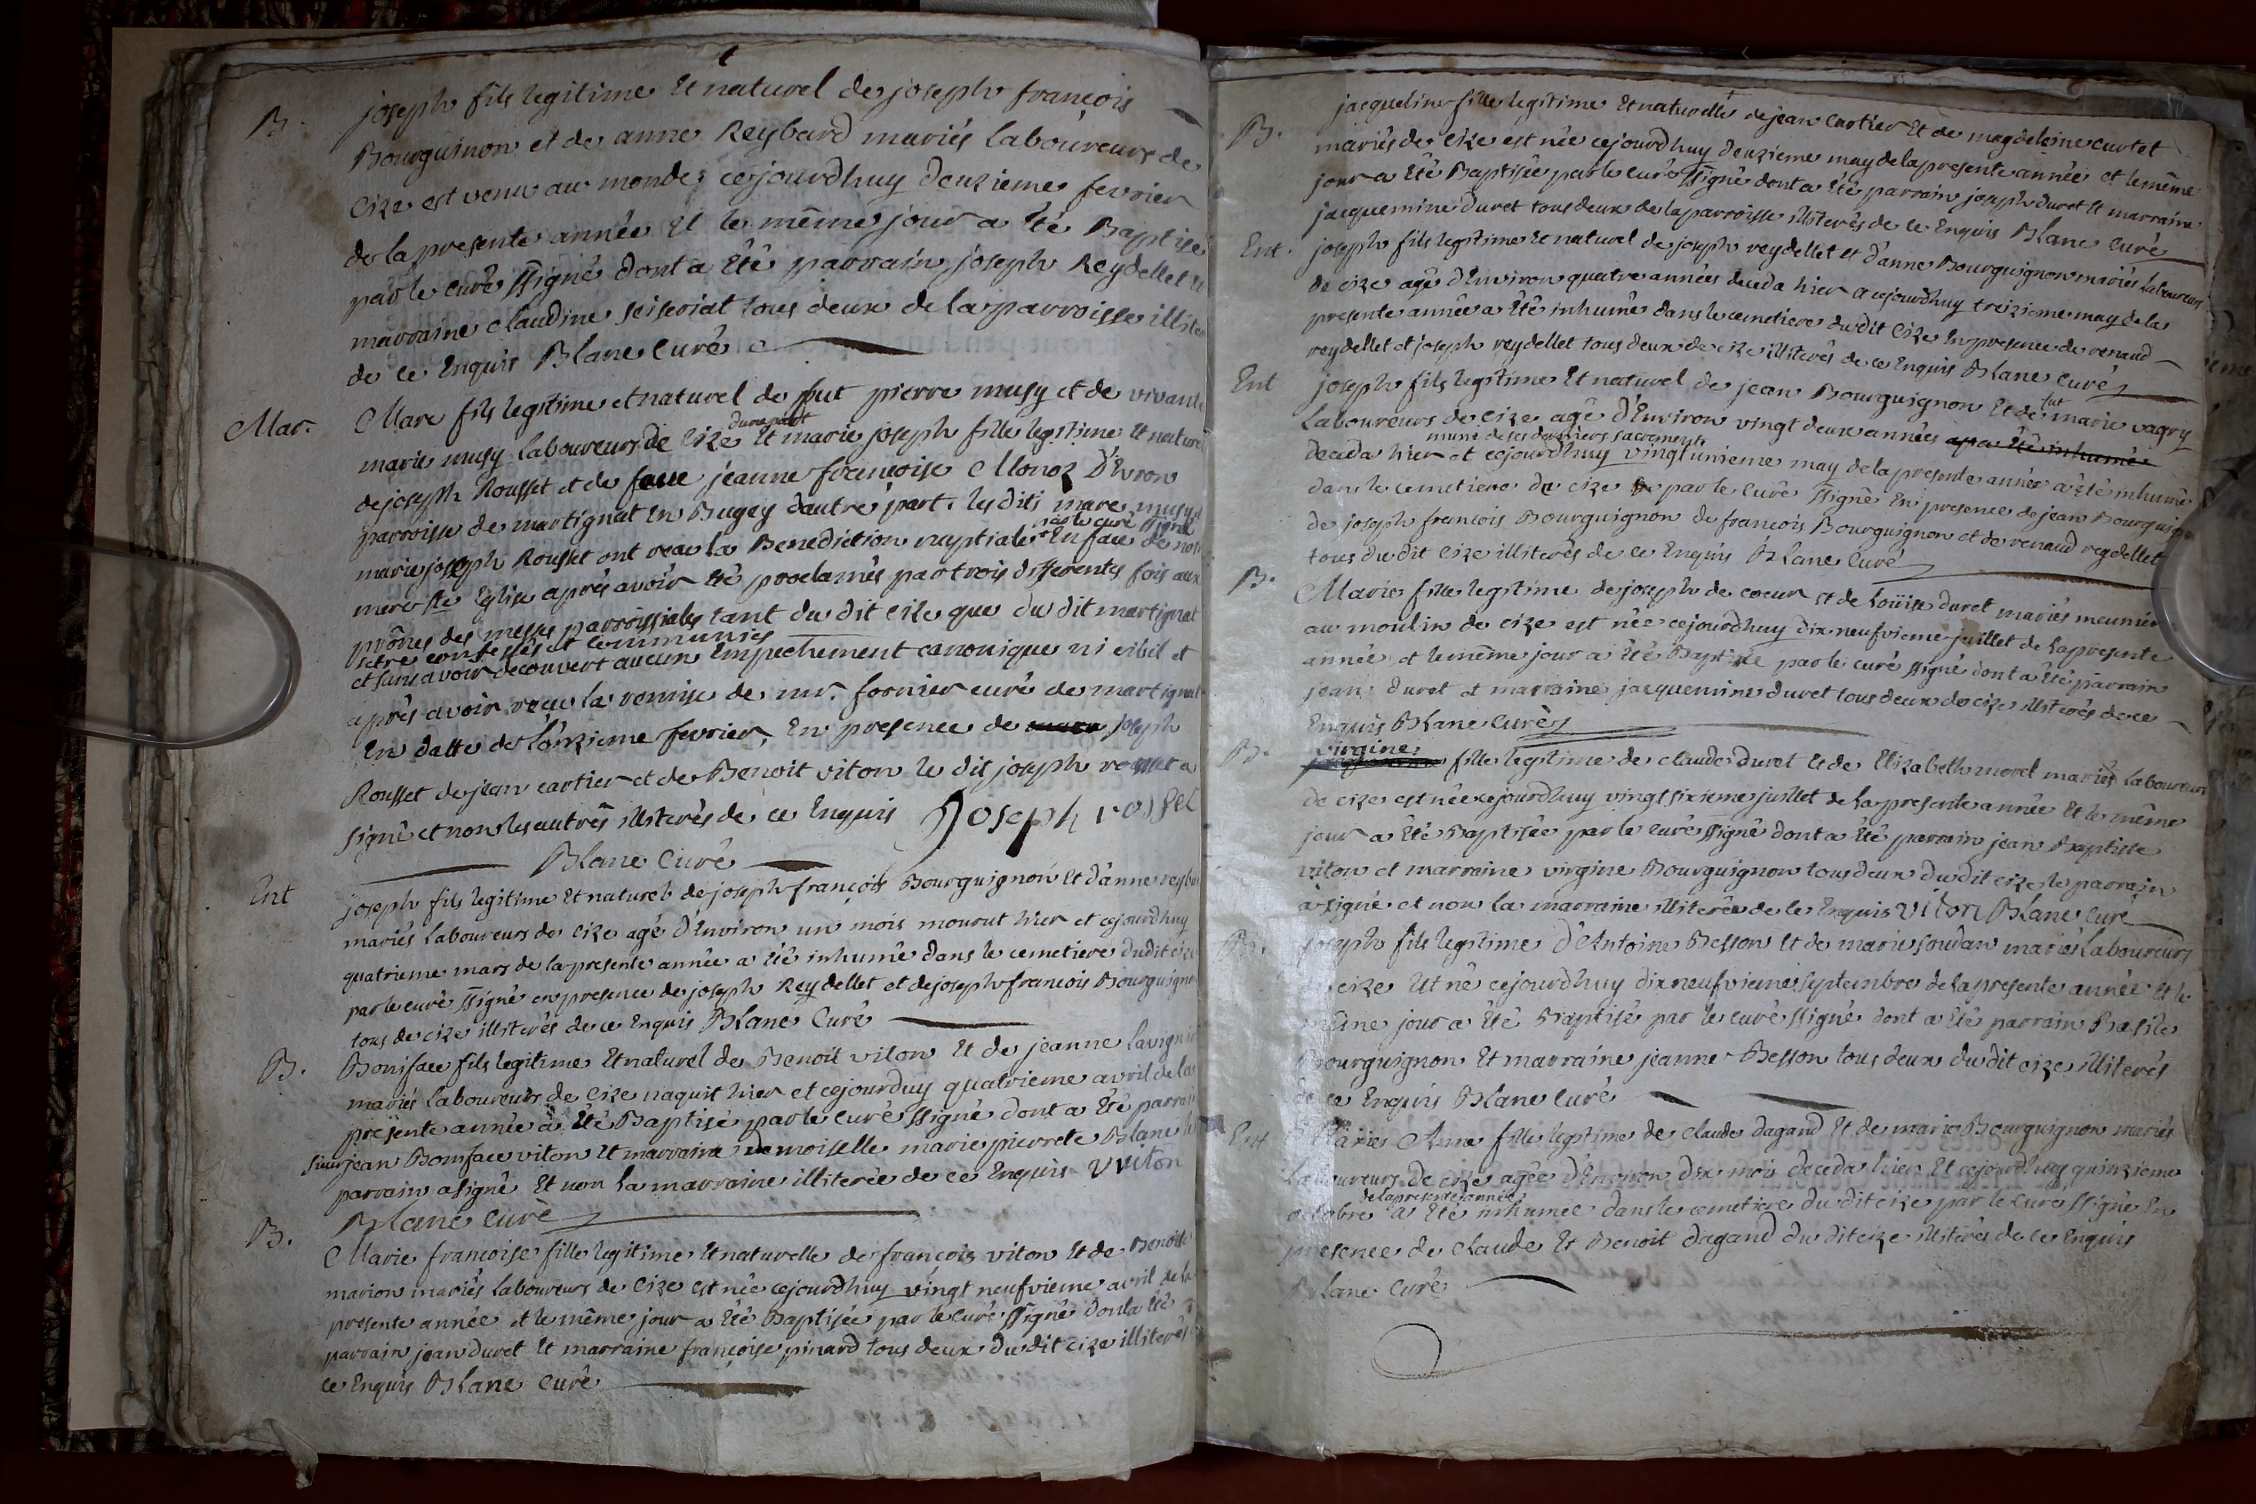 B. joseph fils legitime Et naturel de joseph francois
Bourguinon et de anne Reybard mariés laboureurs de
Cize est venu au monde cejourdhuy deuzieme fevrier
de la presente année Et le même jour a Eté Baptisé
par le curé ssigné dont a Eté parrain joseph Reydellet Et
marraine claudine seiseriat tous deux de la parroisse illite
de ce Enquis Blanc Curé
Mar. Marc fils legitime et naturel de fut pierre musy et de vivante
dune part
marie musy Laboureurs de Cize Et marie joseph fille legitime Et nature
de joseph Rousset et de feue jeanne francoise Monoz D'Evron
parroisse de martignat En Bugey dautre part. les dits marc musy
par le curé ssigné
marie joseph Rousset ont recu la Benediction nuptiale En face de not
mere Ste Eglise aprés avoir Eté proclamés par trois differentes fois aux
prônes des messes parroissiales tant du dit cize que du dit martignat
setre confessés et communiés
et sans avoir decouvert aucun Empechement canonique ni cibil et
aprés avoir recu la remise de mr. fornier curé de martignat
En datte de l'onzieme fevrier, En presence de joseph
Rousset de jean cartier et de Benoit viton le dit joseph rousset a
signé et non les autres illiterés de ce Enquis Joseph rosset
Blanc Curé
Ent joseph fils legitime Et naturel de joseph francois Bourguignon Et d'anne reyba
mariés Laboureurs de Cize agé d'Environ un mois mourut hier et cejourdhuy
quatrieme mars de la presente année a Eté inhumé dans le cemetiere dudit cize
par le curé ssigné en presence de joseph Reydellet et de joseph francois Bourguigno
tous de cize illiterés de ce Enquis Blanc Curé
B. Boniface fils legitime Et naturel de Benoit viton Et de jeanne Lavign
mariés Laboureurs de Cize naquit hier et cejourduy quatrieme avril de la
presente année a Eté Baptisé par le curé ssigné dont a Eté parrai
sieur jean Boniface viton Et marraine demoiselle marie pierrete Blanc le
parrain a signé Et non la marraine illiterée de ce Enquis Viton
Blanc Curé
B. Marie francoise fille legitime Et naturelle de francois viton Et de Benoite
marion mariés Laboureurs de Cize est née cejourdhuy vingt neufvieme avril de la
presente année et le même jour a Eté Baptisée par le curé ssigné dont a Eté
parrain jean duret Et marraine françoise pinard tous deux du dit cize illiterés
ce Enquis Blanc Curé
B. jacqueline fille legitime Et naturelle de jean Cartier Et de magdeleine curtet
mariés de Cize est née cejourdhuy deuzieme may de la presente année et le même
jour a Eté Baptisée par le curé ssigné dont a Eté parrain joseph duret Et marraine
jacquemine duret tous deux de la parroisse illiterés de ce Enquis Blanc Curé
Ent. joseph fils legitime Et naturel de joseph reydellet Et d'anne Bourguignon mariés Laboureurs
de cize agé d'Environ quatre années deceda hier a cejourdhuy treizieme may de la
presente année a Eté inhumé dans le cemetiere dudit Cize En presence de renaud
reydellet et joseph reydellet tous deux de cize illiterés de ce Enquis Blanc Curé
Ent joseph fils legitime Et naturel de jean Bourguignon Et de fut marie vagry
Laboureurs de Cize agé d'Environ vingt deux années a Eté inhumé
muni de ses derniers sacrements
deceda hier et cejourdhuy vingt unieme may de la presente année a eté inhumé
dans le cemetiere de cize par le curé ssigné En presence de jean Bourguignon
de joseph francois Bourguignon de francois Bourguignon et de renaud reydellet
tous du dit Cize illiterés de ce Enquis Blanc Curé
B. Marie fille legitime de joseph de coeur et de Loüise duret mariés meunier
au moulin de cize est née cejourdhuy dix neufvieme juillet de la presente
année et le même jour a Eté Baptisée par le curé ssigné dont a Eté parrain
jean duret et marraine jacquemine duret tous deux de cize illiterés de ce
Enquis Blanc Curé
B. virgine
fille legitime de claude duret Et de Elizabeth morel mariés Laboureurs
de cize est née cejourdhuy vingt sixieme juillet de la presente année Et le même
jour a Eté Baptisée par le curé ssigné dont a Eté parrain jean Baptiste
viton et marraine virgine Bourguignon tous deux du dit cize le parrain
a signé et non la marraine illiterée de ce Enquis Viton Blanc Curé
B. joseph fils legitime d'Antoine Besson Et de marie soudan mariés Laboureurs
cize Et né cejourdhuy dix neufvieme septembre de la presente année Et le
même jour a Eté Baptisé par le curé ssigné dont a Eté parrain Basile
Bourguignon Et marraine jeanne Besson tous deux du dit cize illiterés
de ce Enquis Blanc Curé
Ent Marie Anne fille legitime de claude dagand Et de marie Bourguignon mariés
Laboureurs de Cize agée d'Environ dix mois deceda hier Et cejourdhuy quinzieme
de la presente année
octobre a Eté inhumée dans le cemetiere du dit cize par le curé ssigné En
presence de claude Et Benoit dagand du dit cize illiterés de ce Enquis
Blanc Curé